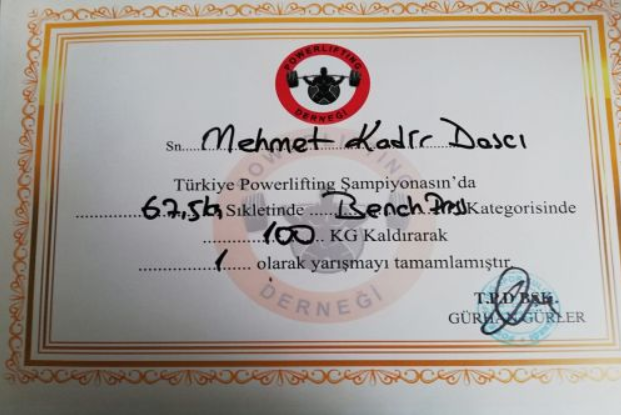 POWERLIFTING
DERNEĞİ
Sn.....Mehmet Kadir Dascı
Türkiye Powerlifting Şampiyonasın'da
..................67,5kg Sıkletinde ......Bench Press Kategorisinde
..............100.. KG Kaldırarak
..................1...... olarak yarışmayı tamamlamıştır
POWERLIFTING
DERNEĞİ
T.P.D BŞK.
GÜRHAN GÜRLER